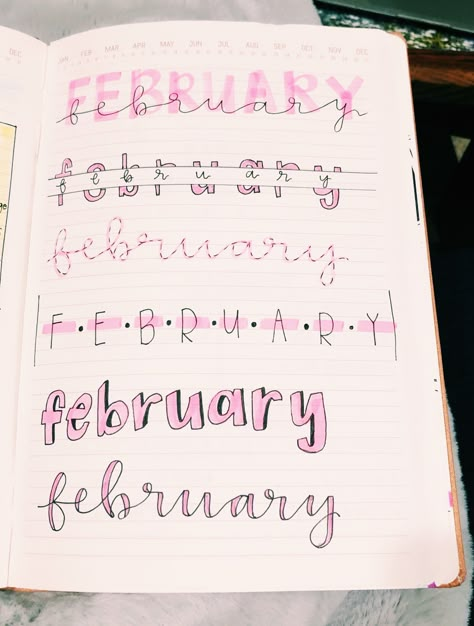 DEC
JAN FEB MAR APR MAY JUN JUL AUG SEP OCT NOV DEC
FEBRUARY
february
february
february
february
F·E·B·R·U·A·R·Y
february
february